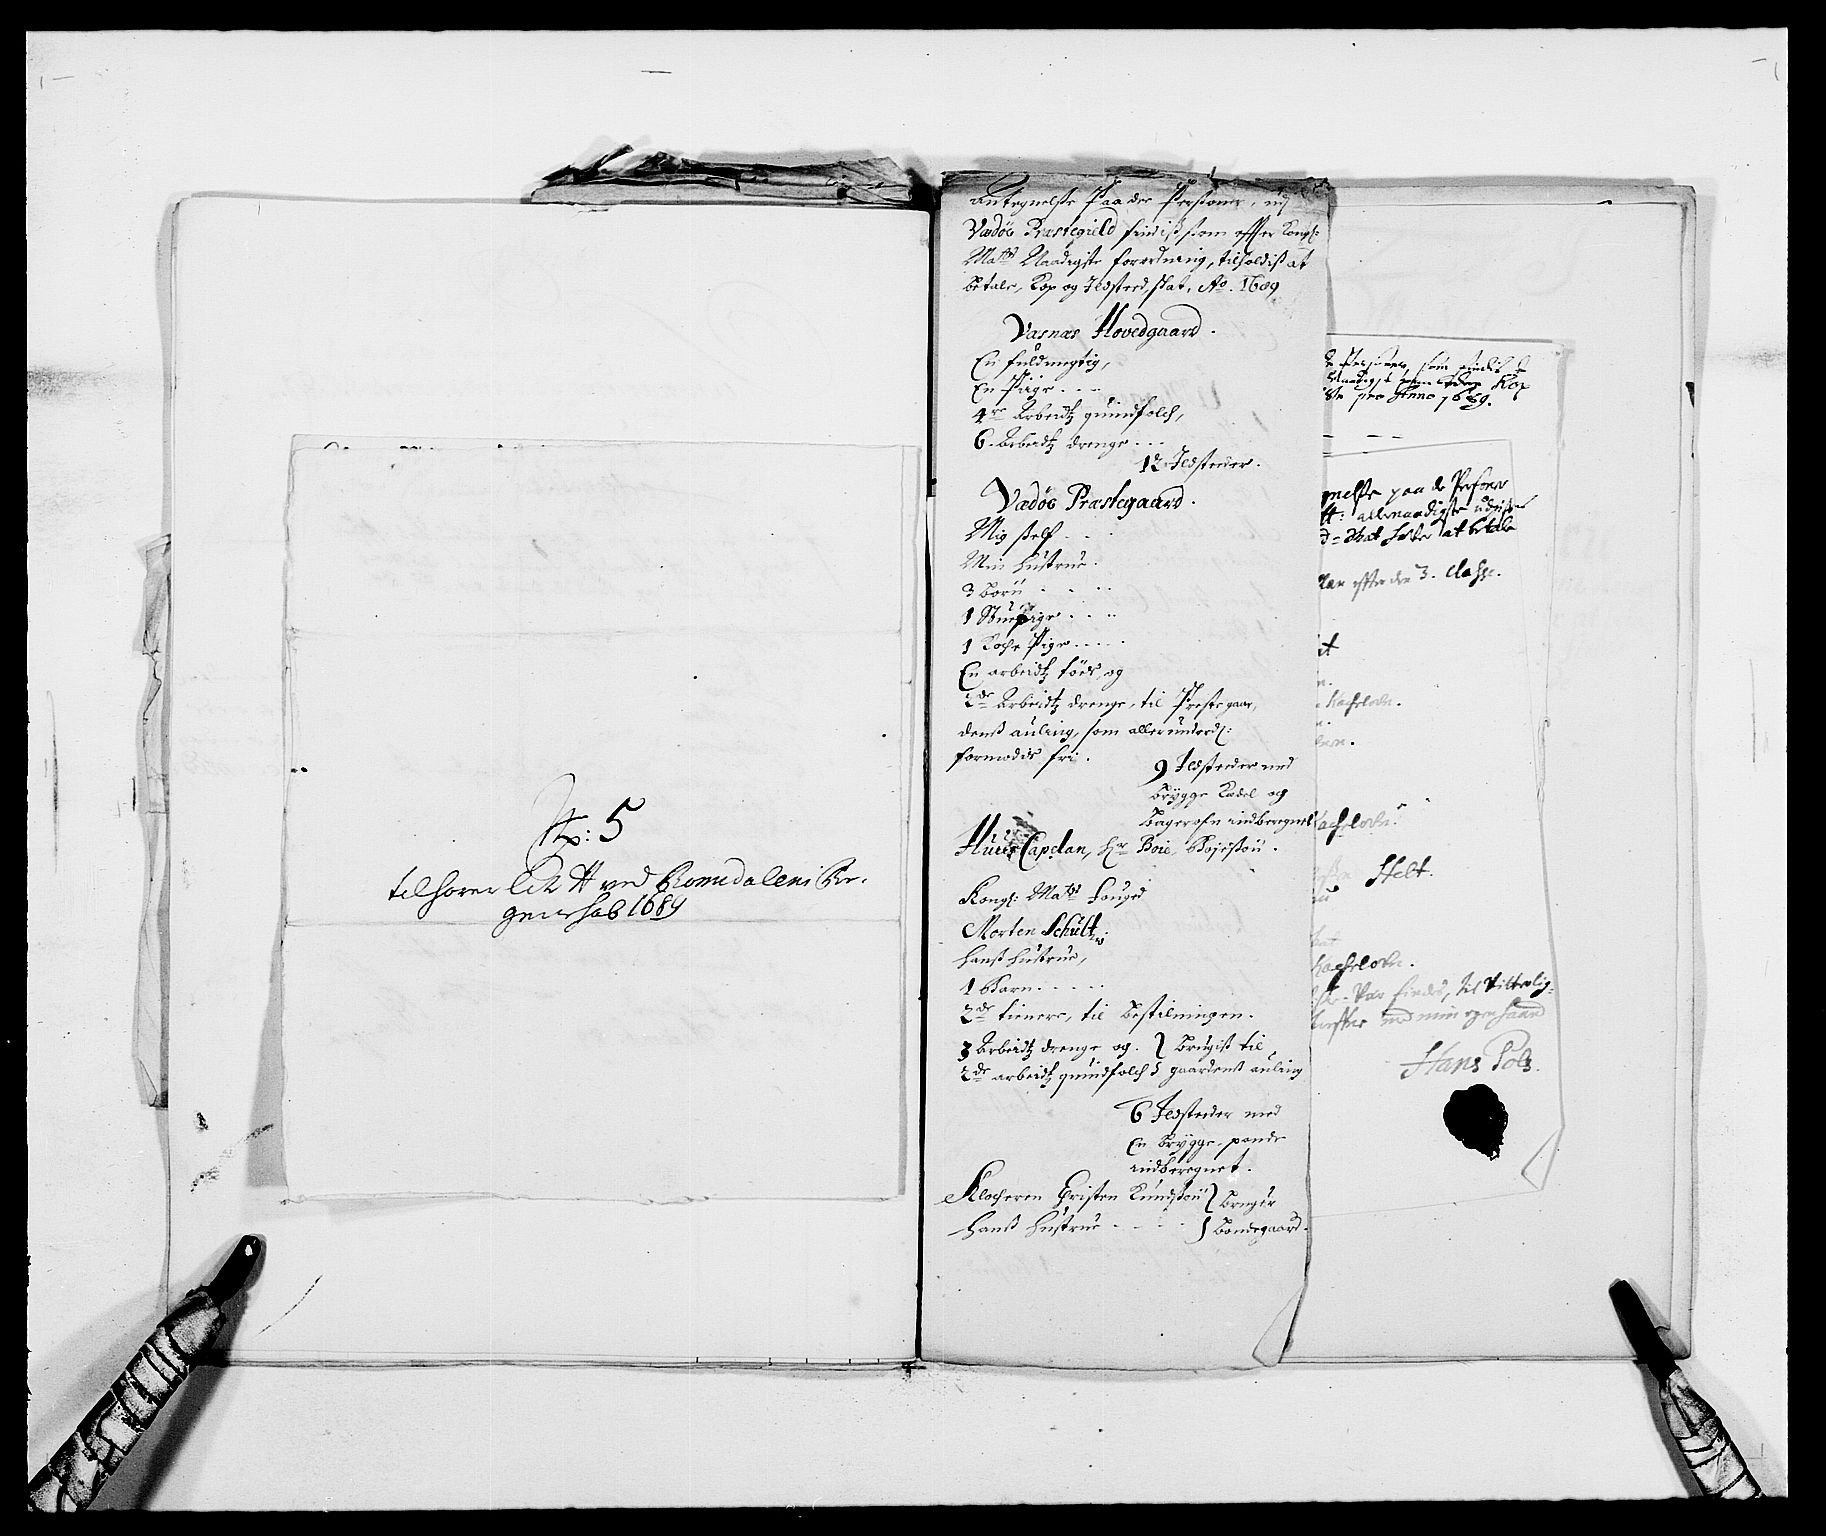 No: 5
tilhører Lit A ved Romsdalens Re-
genschab 1689
Antegnelse Paa de Persohner, udj
Vedøe Præstegield findis som effter Kongl:
Mayts Naadigste forordning, tilholdis at
betale, Kop og Ildsted, skat, Ao. 1689
Vasnæs Hovedgaard.
En fuldmegtig,
En Pige
4re Arbeidtz quindfolch,
6. Arbeidtz drenge
12 Ildsteder.
Vedøe Præstegaard.
Mig self
Min hustrue.
3 Børn
1 Stuepige
1 Koche Pige
En arbeidtz tøes, og
2de Arbeidtz drenge, til Prestegaar,
dens auling, som allerunderd:
formodis fri.
9 Ildsteder med
Brygge Kedel og
Bagerofn indberegnet
Huus Capelan, hr Boie Bojessøn.
Kongl: Mayts Fouged
Morten Schultz,
hans hustrue,
1 Barn
2de tienere, til bestilningen.
3 Arbeidtz drenge og } Brugis til
2de arbeidtz quindfolch } gaardens auling
6 Ildsteder med
En Brygge, pande
indberegnet.
Klocheren Cristen Knudssøn } Bruger
hans hustrue } Bondegaard.
Personer, som findis
Kop
pro Anno 1689.
paa de Persohner
allernaadigste
skat at betale
efter den 3. Classe.
Kachelovn.
Kachelovn.
Helt.
Kachelovn.
findes, til Vitterlig-
med min egen haand
Hans Pols.